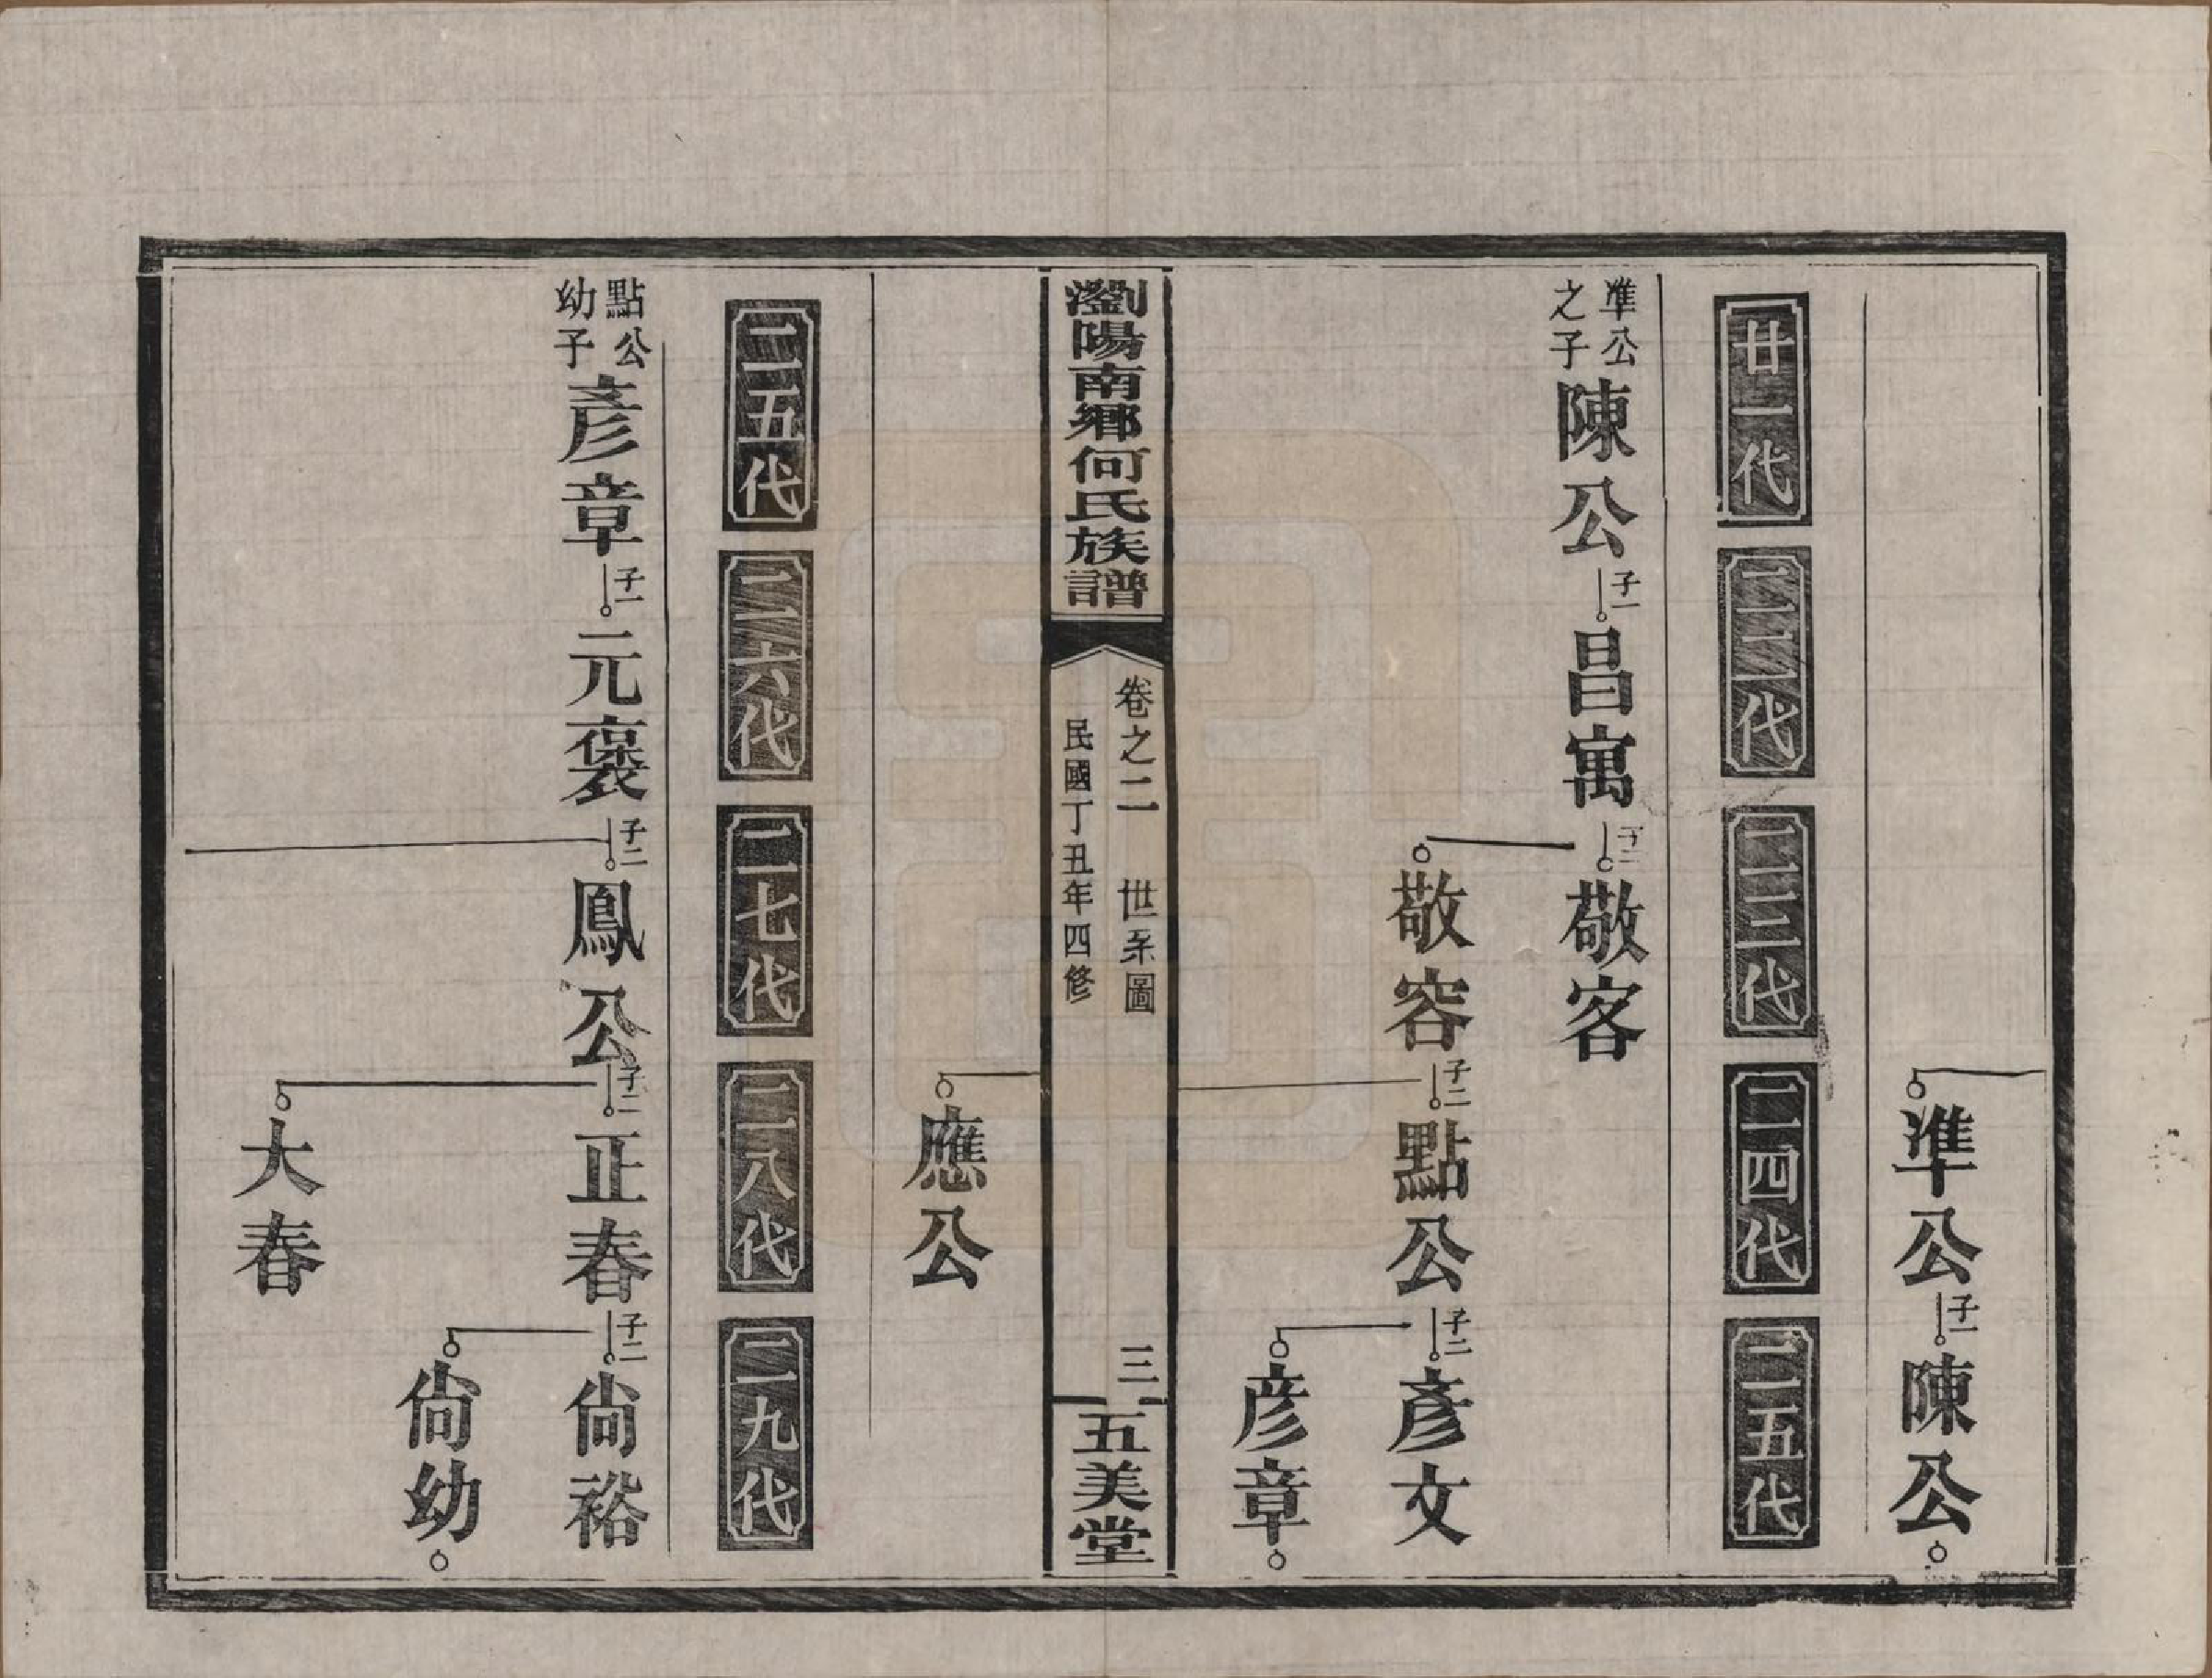 準公 子一 陳公
廿一代 二二代 二三代 二四代 二五代
準公之子 陳公 子一 昌寓 子二 敬客
敬容 子二 點公 子二 彥文
彥章
瀏陽南鄉何氏族譜 卷之二 世系圖 三 五美堂
民國丁丑年四修
應公
二五代 二六代 二七代 二八代 二九代
點公幼子 彥章 子一 元褒 子二 鳳公 子二 正春 子二 尙裕
尙幼
大春